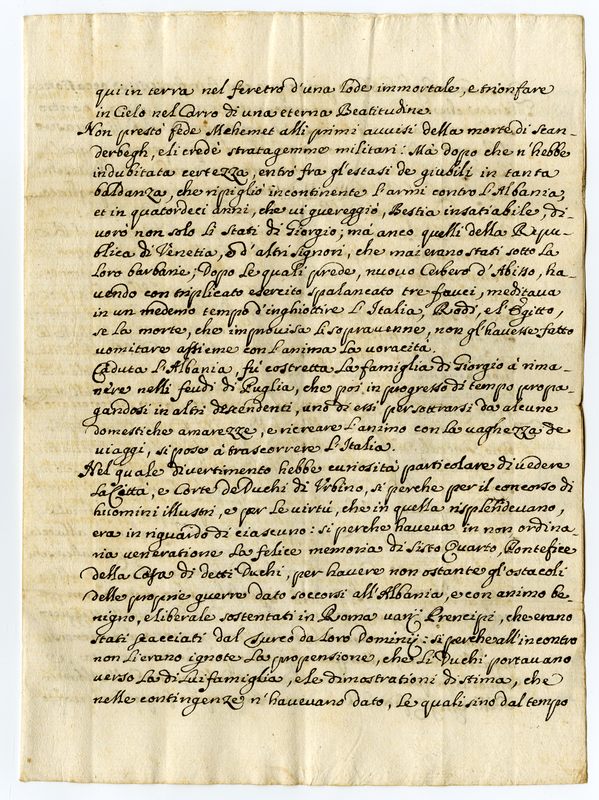 qui in terra nel feretro d'una Lode immortale, e trionfare
in Cielo nel Carro di una eterna Beatitudine.
Non prestò fede Mehemet alli primi avvisi della morte di Scan-
derbegh, e li credè stratagemme militari: Mà dopo che n'hebbe
indubitata certezza, entrò fra gl'estasi de giubili in tanta
baldanza, che ripigliò incontinente l'armi contro l'Albania,
et in quatordeci anni, che vi guereggiò, Bestia insatiabile, di-
vorò non solo li Stati di Giorgio; mà anco quelli della Repu-
blica di Venetia, e d'altri Signori, che mai erano stati sotto la
loro barbarie; Dopo le quali prede, nuovo Cerbero d'Abisso, ha-
vendo con triplicato esercito spalancato tre fauci, meditava
in un medemo tempo d'inghiottire l'Italia, Rodi, e l'Egitto,
se la morte, che improvisa li sopravenne, non gl'havesse fatto
vomitare assieme con l'anima la voracità.
Caduta l'Albania, fù costretta la famiglia di Giorgio à rima-
nere nelli feudi di Puglia, che poi in progresso di tempo propa-
gandosi in altri descendenti, uno di essi per sottrarsi da alcune
domestiche amarezze, e ricreare l'animo con la vaghezza de
viaggi, si pose à trascorrere l'Italia.
Nel quale divertimento hebbe curiosità particolare di vedere
la Città, e Corte de Duchi di Urbino, si perche per il concorso di
huomini illustri, e per le virtù, che in quella risplendevano,
era in riguardo di ciascuno: si perche haveva in non ordina-
ria veneratione la felice memoria di Sisto Quarto, Pontefice
della Casa di detti Duchi, per havere non ostante gl'ostacoli
delle proprie guerre dato soccorsi all'Albania, e con animo be-
nigno, e liberale sostentati in Roma varij Prencipi, che erano
stati scacciati dal Turco da loro Dominij: si perche all'incontro
non li erano ignote la propensione, che li Duchi portavano
verso la di lui famiglia, e le dimostrationi di stima, che
nelle contingenze n'havevano dato, le quali sino dal tempo